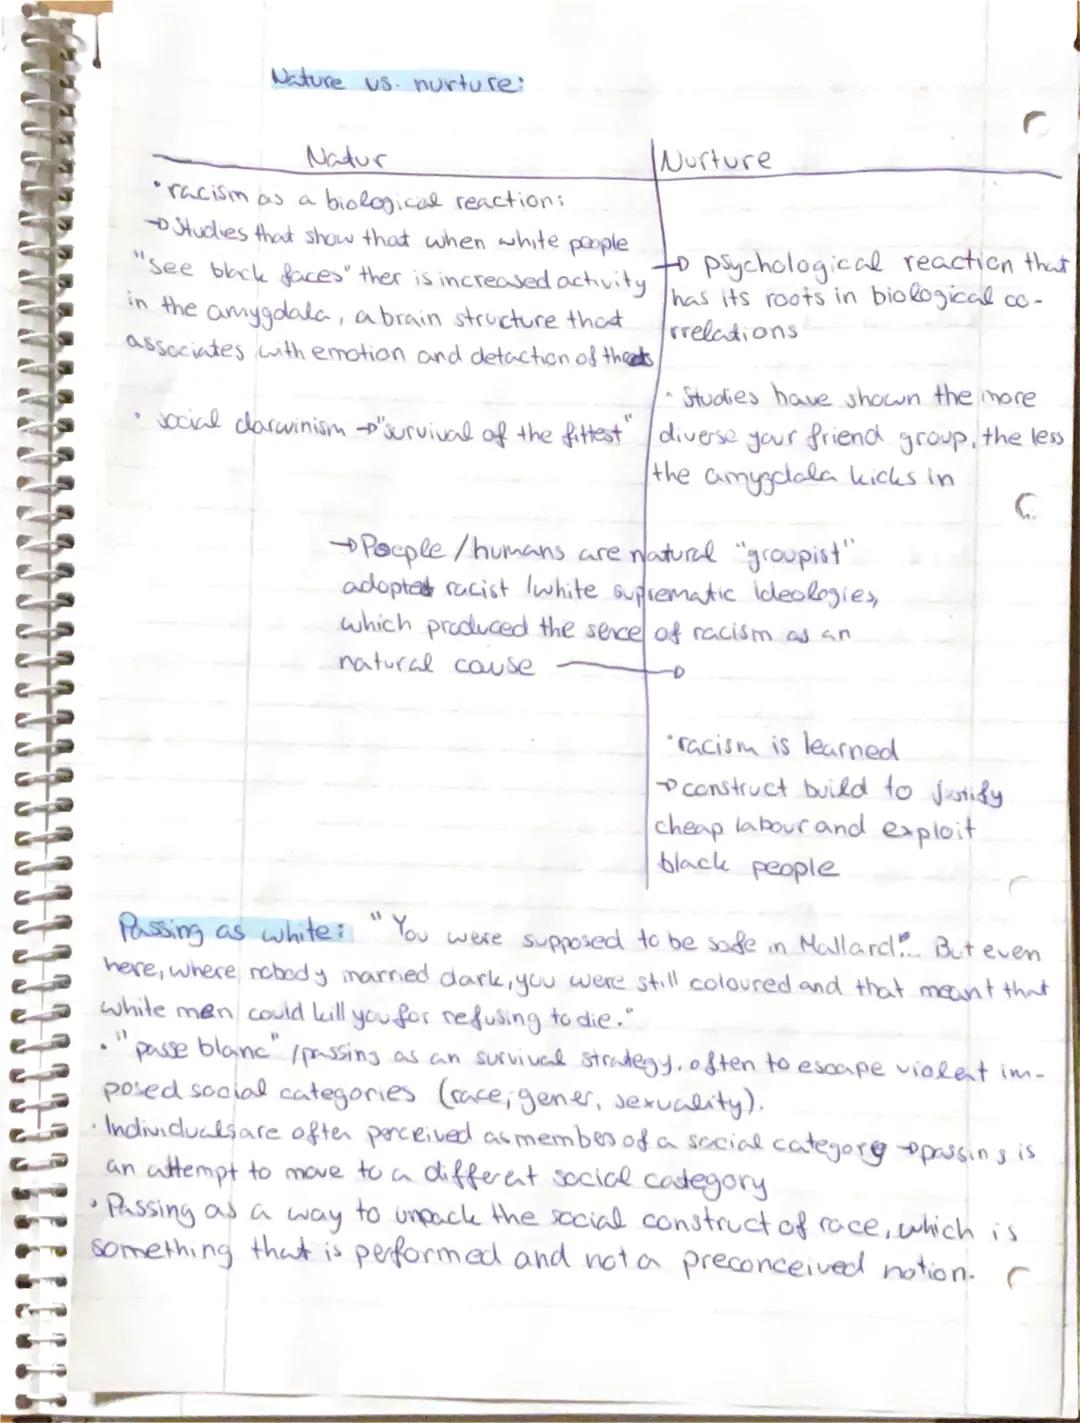 Nature vs. nurture:
Natur
Nurture
• racism as a biological reaction:
→ Studies that show that when white people
"see black faces" ther is increased activity
in the amygdala, a brain structure that
associates with emotion and detaction of threats
• social darwinism → "survival of the fittest"
→ psychological reaction that
has its roots in biological co-
rrelations
• Studies have shown the more
diverse your friend group, the less
the amygdala kicks in
→ People / humans are natural "groupist"
adopted racist / white suprematic Ideologies,
which produced the sence of racism as an
natural cause →
• racism is learned
→ construct build to justify
cheap labour and exploit
black people
Passing as white: "You were supposed to be safe in Mallard"... But even
here, where nobody married dark, you were still coloured and that meant that
white men could kill you for refusing to die."
• "passe blanc" / passing as an survival strategy, often to escape violent im-
posed social categories (race, gener, sexuality).
• Individuals are often perceived as members of a social category → passing is
an attempt to move to a different social category
• Passing as a way to unpack the social construct of race, which is
something that is performed and not a preconceived notion.